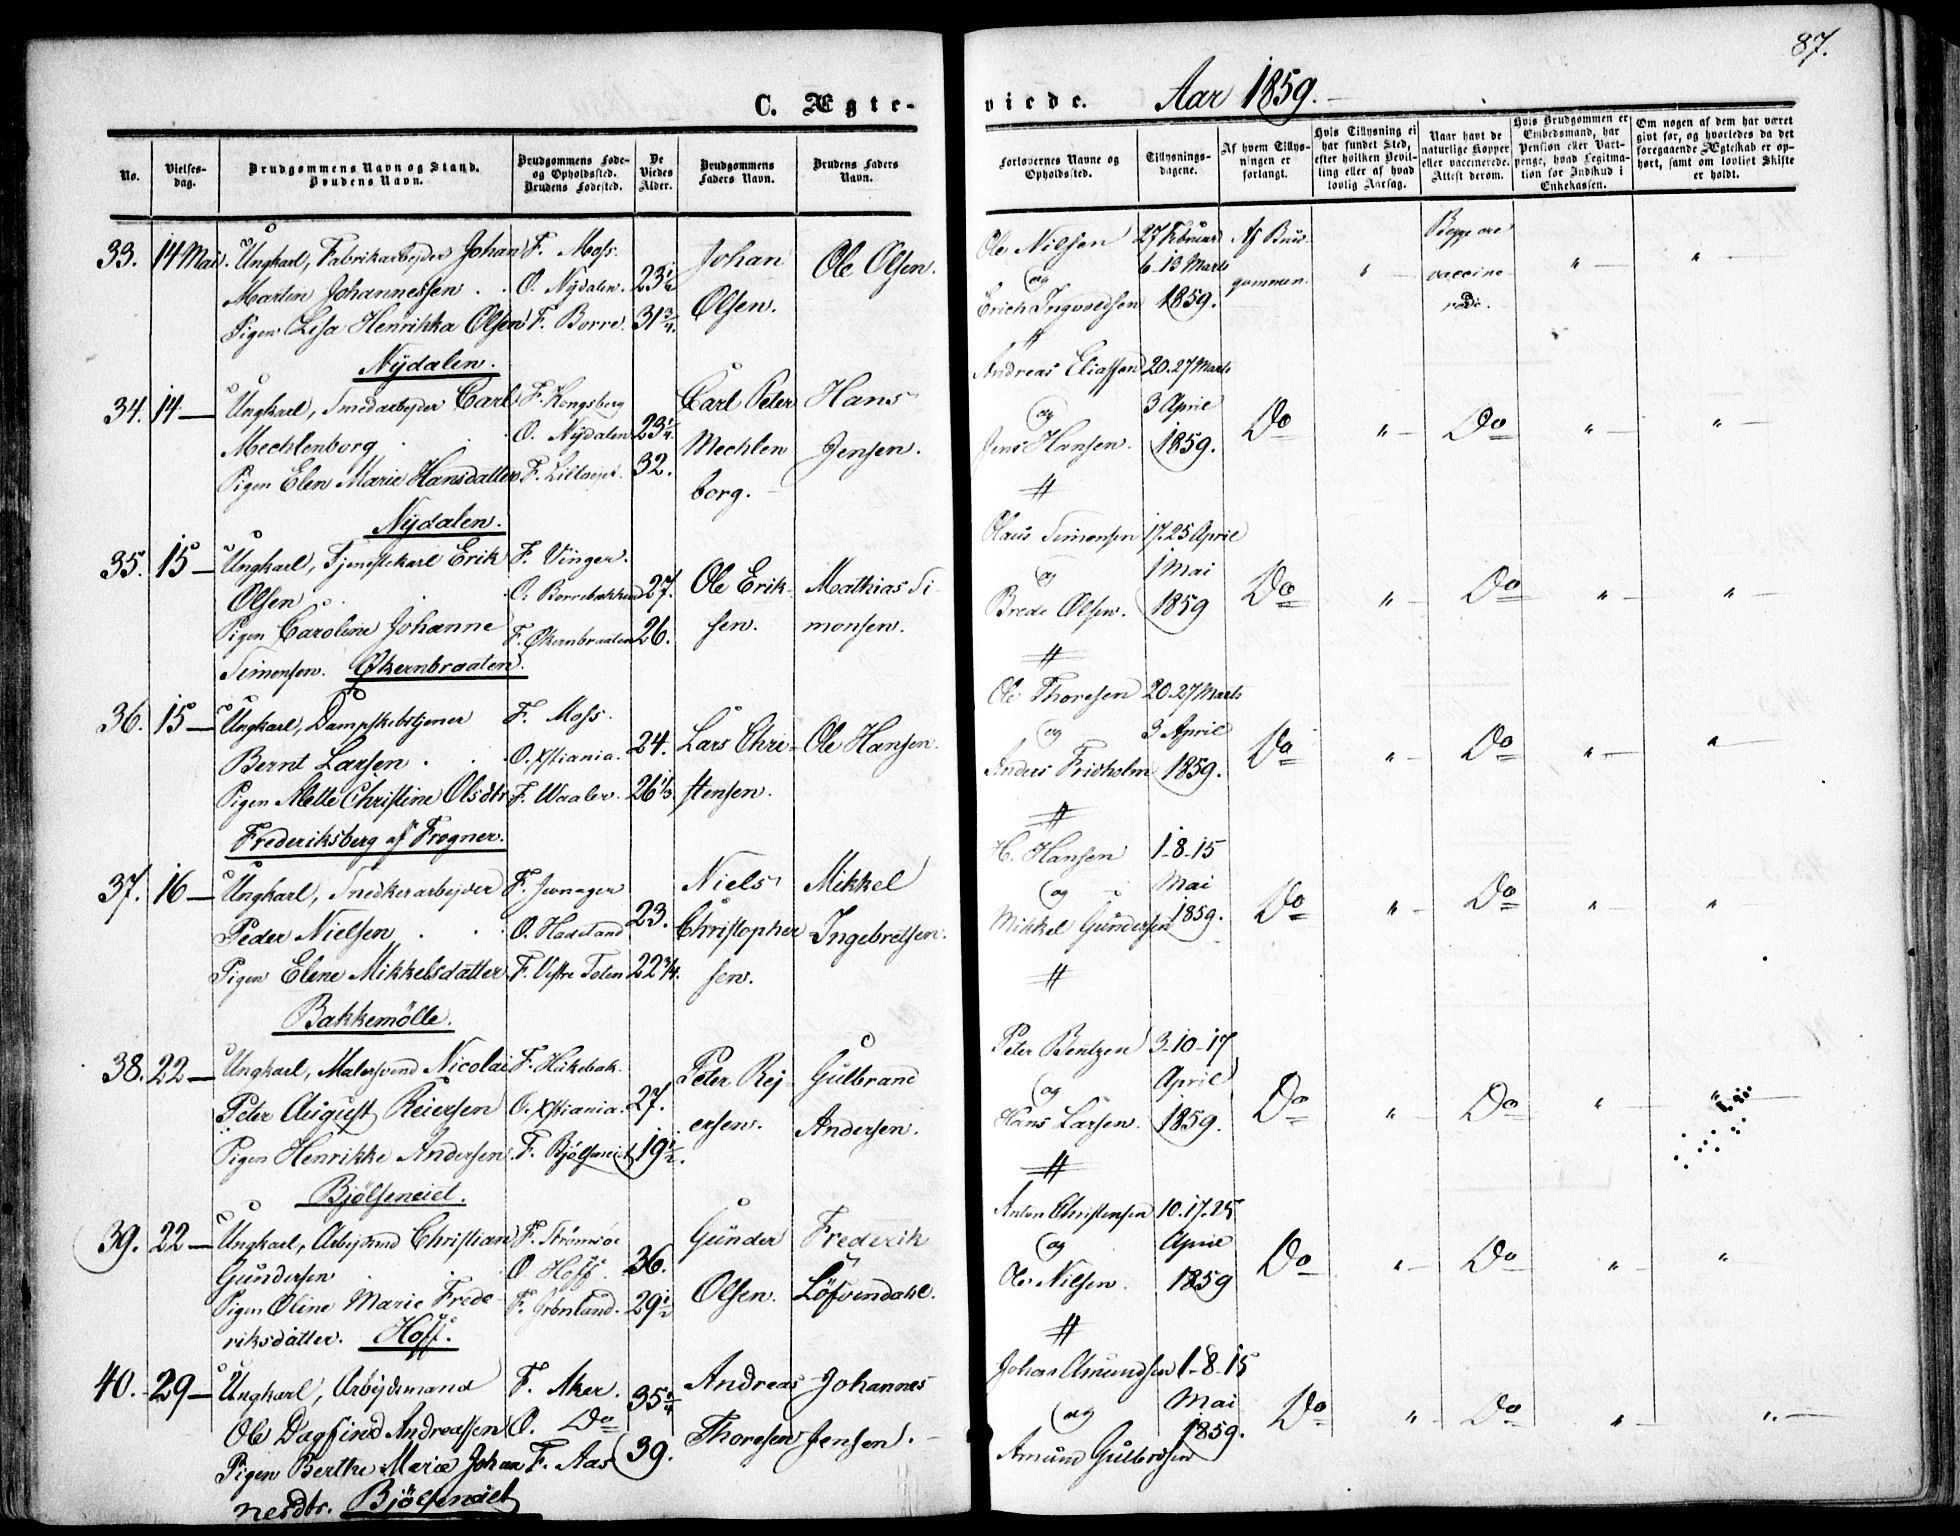 87.
C. Ægte-
viede.
Aar 1859.
No.
Vielses-
dag.
Brudgommens Navn og Stand.
Brudens Navn.
Brudgommens Føde-
og Opholdssted.
Brudens Fødested.
De
Viedes
Alder.
Brudgommens
Faders Navn.
Brudens Faders
Navn.
Forlovernes Navne og
Opholdssted.
Tillysnings-
dagene.
Af hvem Tillys-
ningen er
forlangt.
Hvis Tillysning ei
har fundet Sted,
efter hvilken Bevil-
ling eller af hvad
lovlig Aarsag.
Naar havt de
naturlige Kopper
eller vaccinerede.
Attest derom.
Hvis Brudgommen er
Embedsmand, har
Pension eller Vart-
penge, hvad Legitma-
tion for Indskud i
Enkekassen.
Om nogen af dem har været
givt før, og hvorledes da det
foregaaende Ægteskab er op-
hørt, samt om lovligt Skifte
er holdt.
33. 14 Mai. Ungkarl, Fabrikarbejder Johan F. Moss. Johan Ole Olsen.
Martin Johannessen . . O. Nydalen. 23½ Olsen.
Pigen Lisa Henrikka Olsen F. Borre. 31¾.
Nydalen.
Ole Nilsen 27 Februar Af Brud- Begge ere
og 6-13 Marts gommen. " vaccine- " "
Erich Ingvoldsen 1859. rede.
34. 14 — Ungkarl, Smedarbejder Carl F. Kongsberg Carl Peter Hans
Mechlenborg . . O. Nydalen 23¼. Mechlen Jensen.
Pigen Elen Marie Hansdatter F. 32. borg.
Nydalen.
Andreas Eliassen 20.27 Marts
og 3 April Do " Do " "
Jens Hansen. 1859.
35. 15 — Ungkarl, Tjenestekarl Erik F. Vinger.
Olsen . . O. Borrebækken 27. Ole Erik- Mathias Si-
Pigen Caroline Johanne F. Økernbraaten 26. sen. monsen.
Simonsen. Økernbraaten.
Olaus Simonsen 17.25 April
og 1 Mai Do " Do " "
Brede Olsen. 1859
36. 15 — Ungkarl, Dampskibstjener F. Moss.
Bernt Larsen . . O. Xstiania. 24. Lars Chri- Ole Hansen.
Pigen Mette Christine Olsdtr F. Waaler. 26⅓. stensen.
Frederiksberg af Frogner.
Ole Thoresen 20.27 Marts
og 3 April Do " Do " "
Anders Fridholm 1859.
37. 16 — Ungkarl, Snedkerarbejder F. Jevnager Niels Mikkel
Peder Nielsen . . O. Hadeland 23. Christopher Ingebretsen.
Pigen Elene Mikkelsdatter F. Vestre Toten 22¾. sen.
Bakkemölle.
H. Hansen 1-8-15
og Mai Do " Do " "
Mikkel Gundersen 1859.
38. 22 — Ungkarl, Malersvend Nicolai F. Peter Rej- Gulbrand
Peter August Reiersen O. Xstiania. 27. ersen. Andersen.
Pigen Henrikke Andersen. F. Bjølseneiet 19½.
Bjølseneiet.
Peter Bentzen 3-10-17
og April Do " Do " "
Hans Larsen. 1859.
39. 22 — Ungkarl, Arbejdsmand Christian F. Strømsøe Gunder Frederik
Gundersen . . O Hoff. 36. Olsen. Löfvendahl.
Pigen Oline Marie Frede- F. Grønland. 29½
riksdatter. Hoff.
Anton Christensen 10.17.25
og April Do " Do " "
Ole Nilsen. 1859
40. 29 — Ungkarl, Arbejdsmand F. Aker. Andreas Johannes
Ole Dagfind Andreassen O. Do 35¼ Thoresen Jensen.
Pigen Berthe Marie Johan F. Aas 39.
nesdtr. Bjölseneiet
Johan Amundsen 1-8-15
og Mai Do " Do " "
Amund Gulbrdsen 1859.